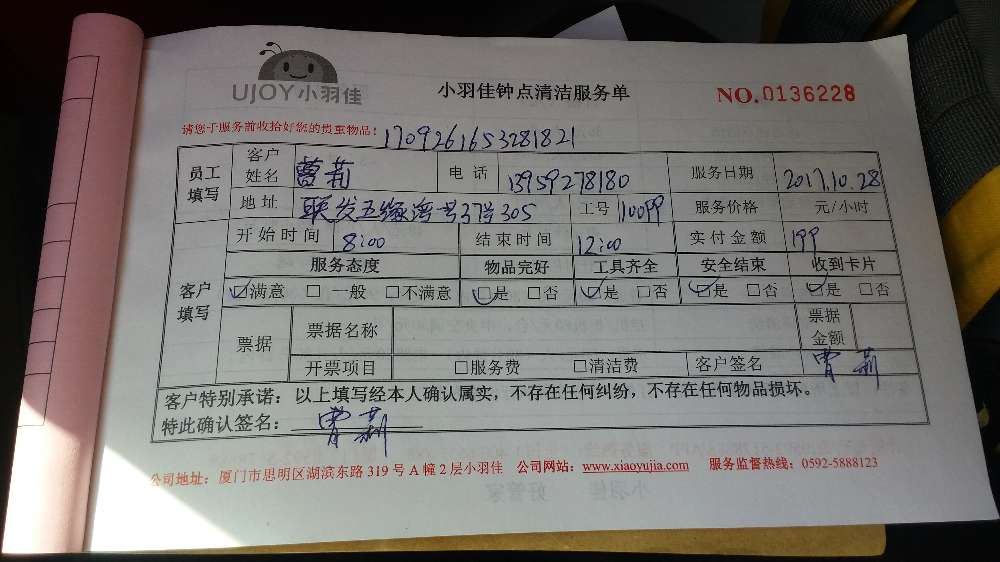 UJOY小羽佳
小羽佳钟点清洁服务单
NO.0136228
请您于服务前收拾好您的贵重物品! 1709261653281821
员工填写 客户姓名 曹莉 电话 13959278180 服务日期 2017.10.28
地址 联发五缘湾1号37号305 工号 100PP 服务价格 元/小时
开始时间 8:00 结束时间 12:00 实付金额 199
客户填写 服务态度 物品完好 工具齐全 安全结束 收到卡片
☑满意 □一般 □不满意 ☑是 □否 ☑是 □否 ☑是 □否 ☑是 □否
票据 票据名称 票据金额
开票项目 □服务费 □清洁费 客户签名 曹莉
客户特别承诺：以上填写经本人确认属实，不存在任何纠纷，不存在任何物品损坏。
特此确认签名： 曹莉
公司地址：厦门市思明区湖滨东路319号A幢2层小羽佳 公司网站：www.xiaoyujia.com 服务监督热线：0592-5888123